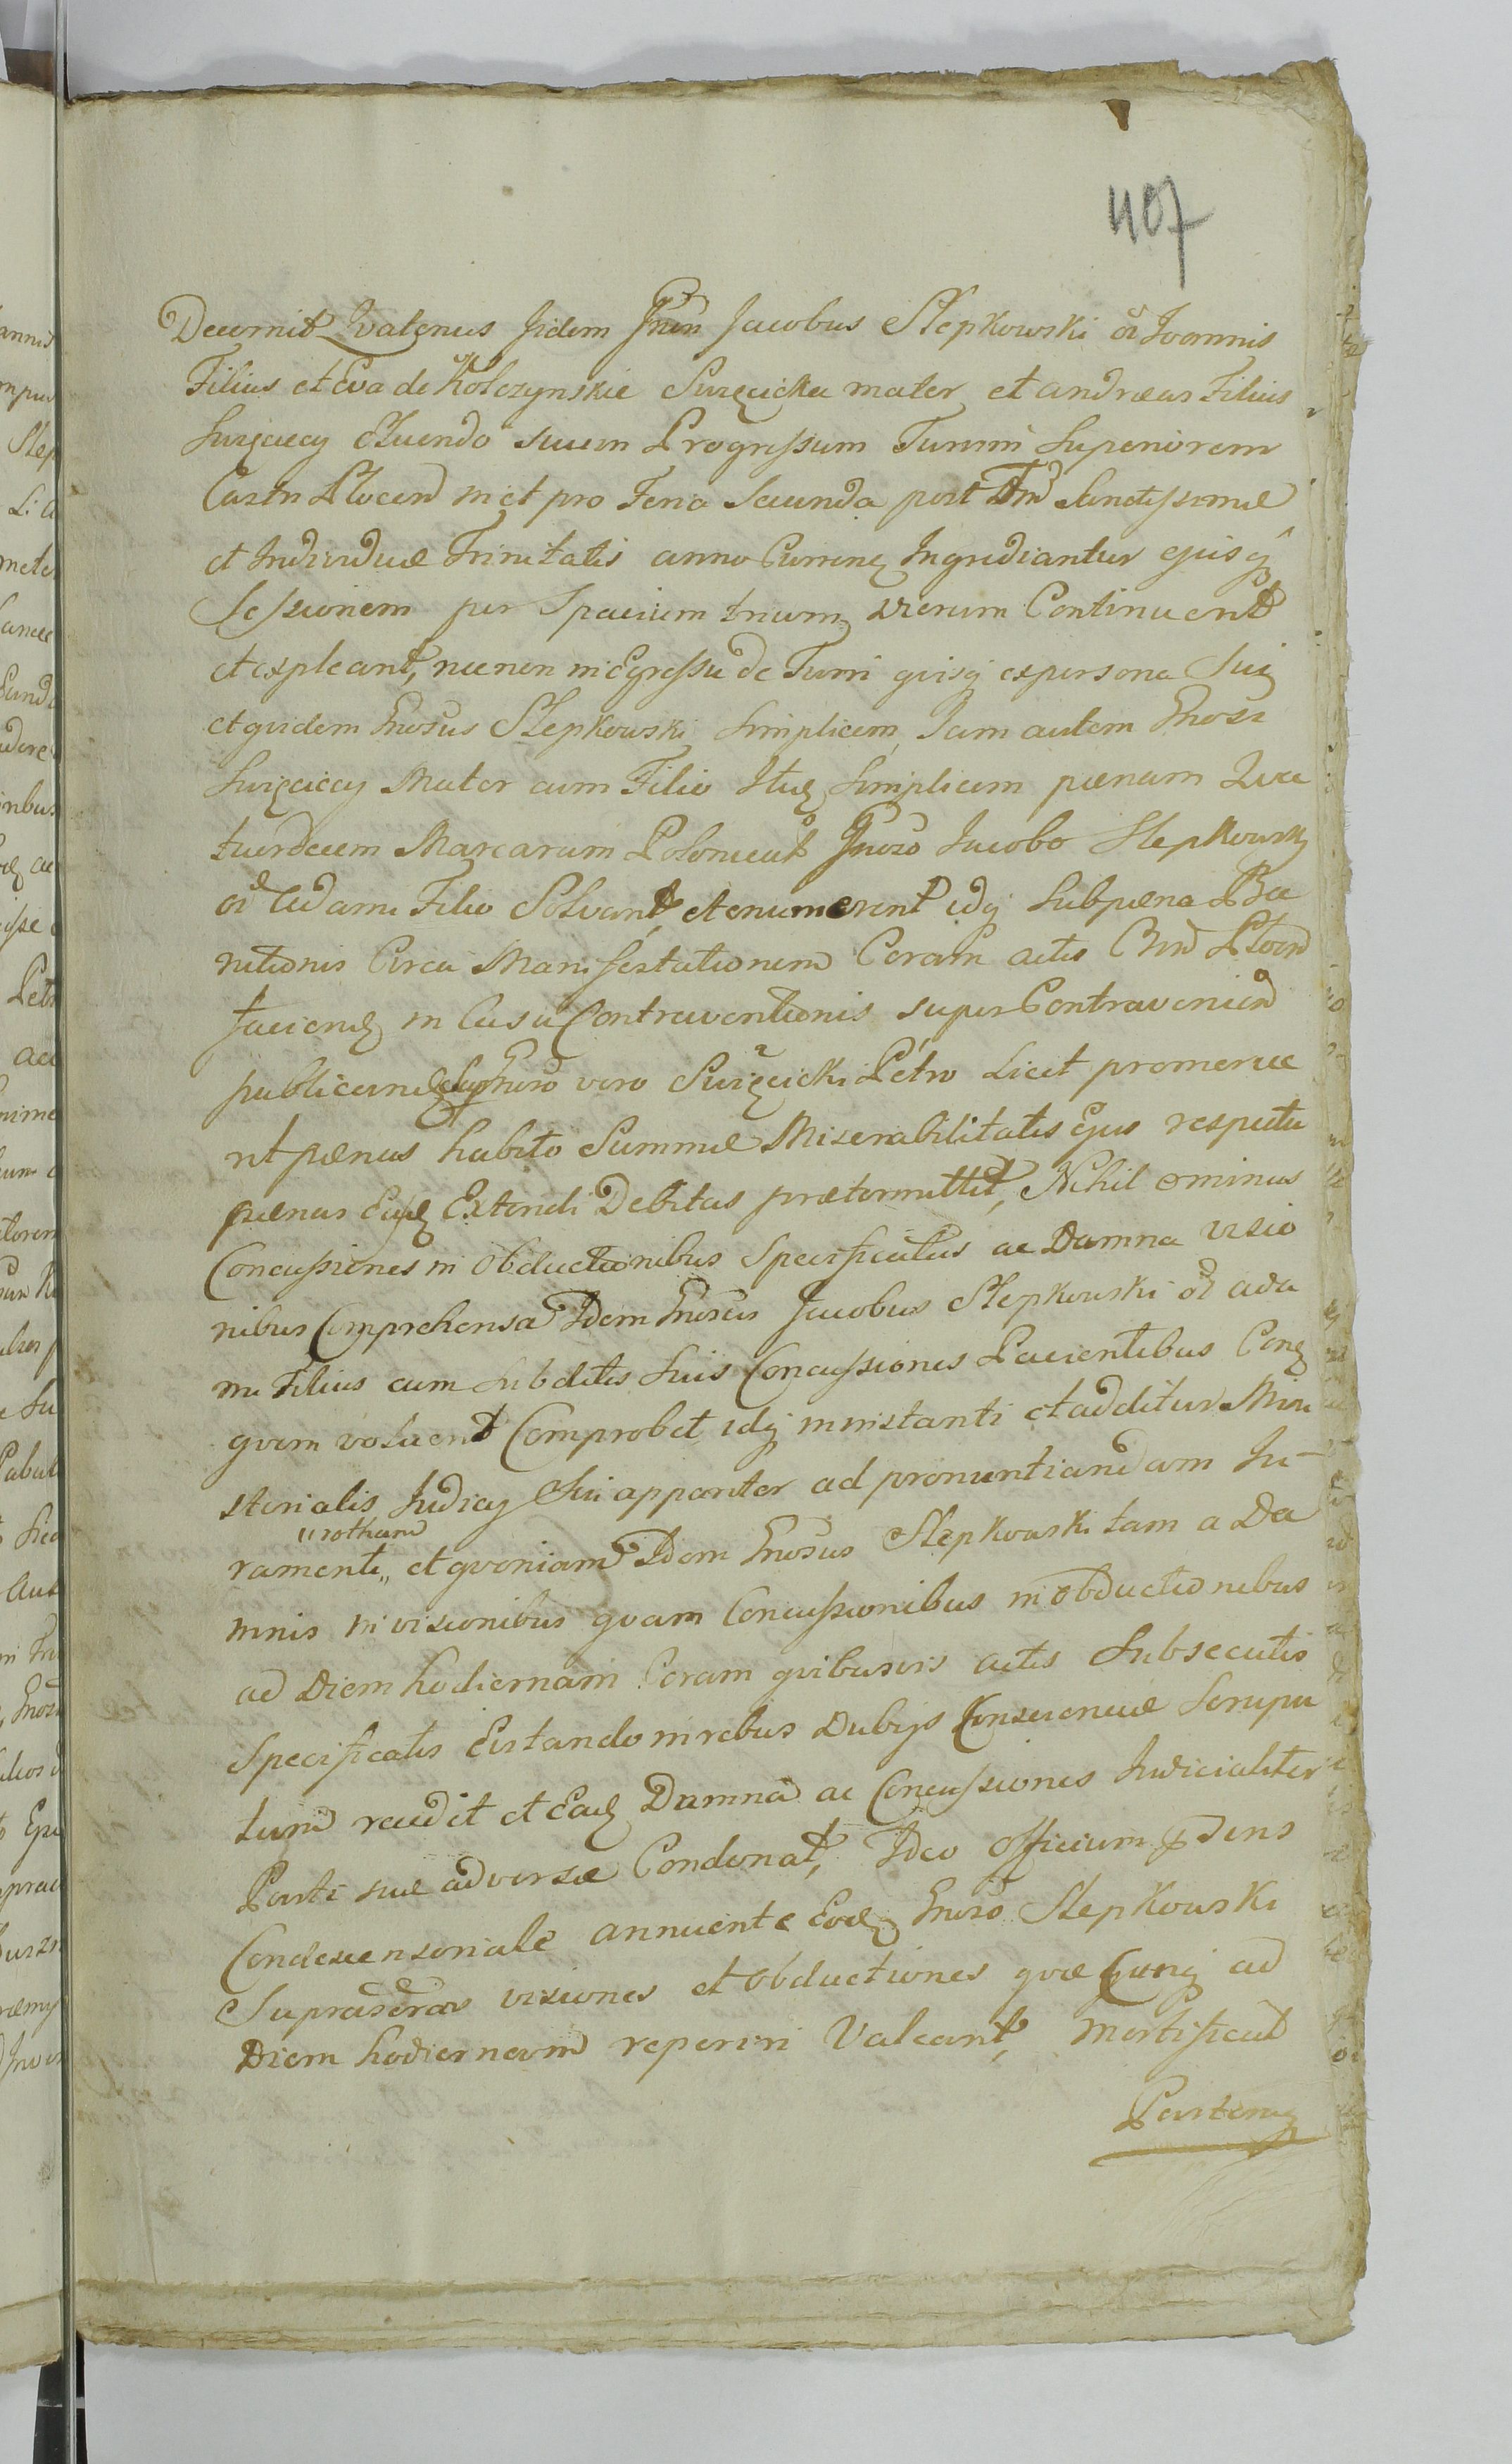 407
Decernit Qvatenus Iidem Gnosi Jacobus Slepkowski oi Joannis
Filius et Eva de Kołczynskie Swięcicka mater et andreas Filius
Swięciccy Eluendo suum Progressum Turrim Superiorem
Castri Plocen in et pro Feria Secunda post Dnc̃ Sanctissimæ
et Individuæ Trinitatis anno Curren̨ Ingrediantur ejusq̃
Sessionem per Spacium trium dierum Continuent
et expleant, necnon in Egressu de Turri qvisq̃ ex persona Sui
et qvidem Gnosus Slepkowski Simplicem, Jam autem Gnosi
Swięciccy Mater cum Filio Itid̨ Simplicem pænam Qua
tuordecem Marcarum Polonical Gnoso Jacobo Slepkowski
oi Adami Filio Solvant et enumerent idq̃ Sub pæna Ba
nitionis Circa Manifestationem Coram actis Cast̃ Plocen̄
faciend̨ in Casu Contraventionis super Contravenien̄
publicand̨ Gnoso vero Swięcicki Petro Licet promerue
rit pænas habito Summæ Miserabilitatis Ejus respectu
pænas Eid̨ Extendi Debitas prætermittit, Nihil ominus
Concussiones in Obductionibus Specificatus ac Damna visio
nibus Comprehensa Idem Gnosus Jacobus Slepkowski oi ada
mi Filius cum Subditis Suis Concussiones Pacientibus
qvem voluerit Comprobet idq̃ in instanti et additur Mini
sterialis Judicy Sui appariter ad pronuntiandam Ju-
ramenti „ et qvoniam Idem Gnosus Slepkowski tam a Da
"rotham
mnis in visionibus qvam Concussionibus in Obductionibus
ad Diem hodiernam Coram qvibusvis actis Subsecutis
Specificatis Evitando in rebus Dubijs Conscienciæ Scrupu
lum recedit et Ead̨ Damna ac Concussiones Judicialiter
Parti suæ adversæ Condonat, Ideo Officium p̃dens
Condescensoriale annuente Eod̨ Gnoso Slepkowski
Supradictas visiones et obductiones qvæ Cunq̃ ad
Diem hodiernam reperiri Valeant, mortificat
Partemq̃